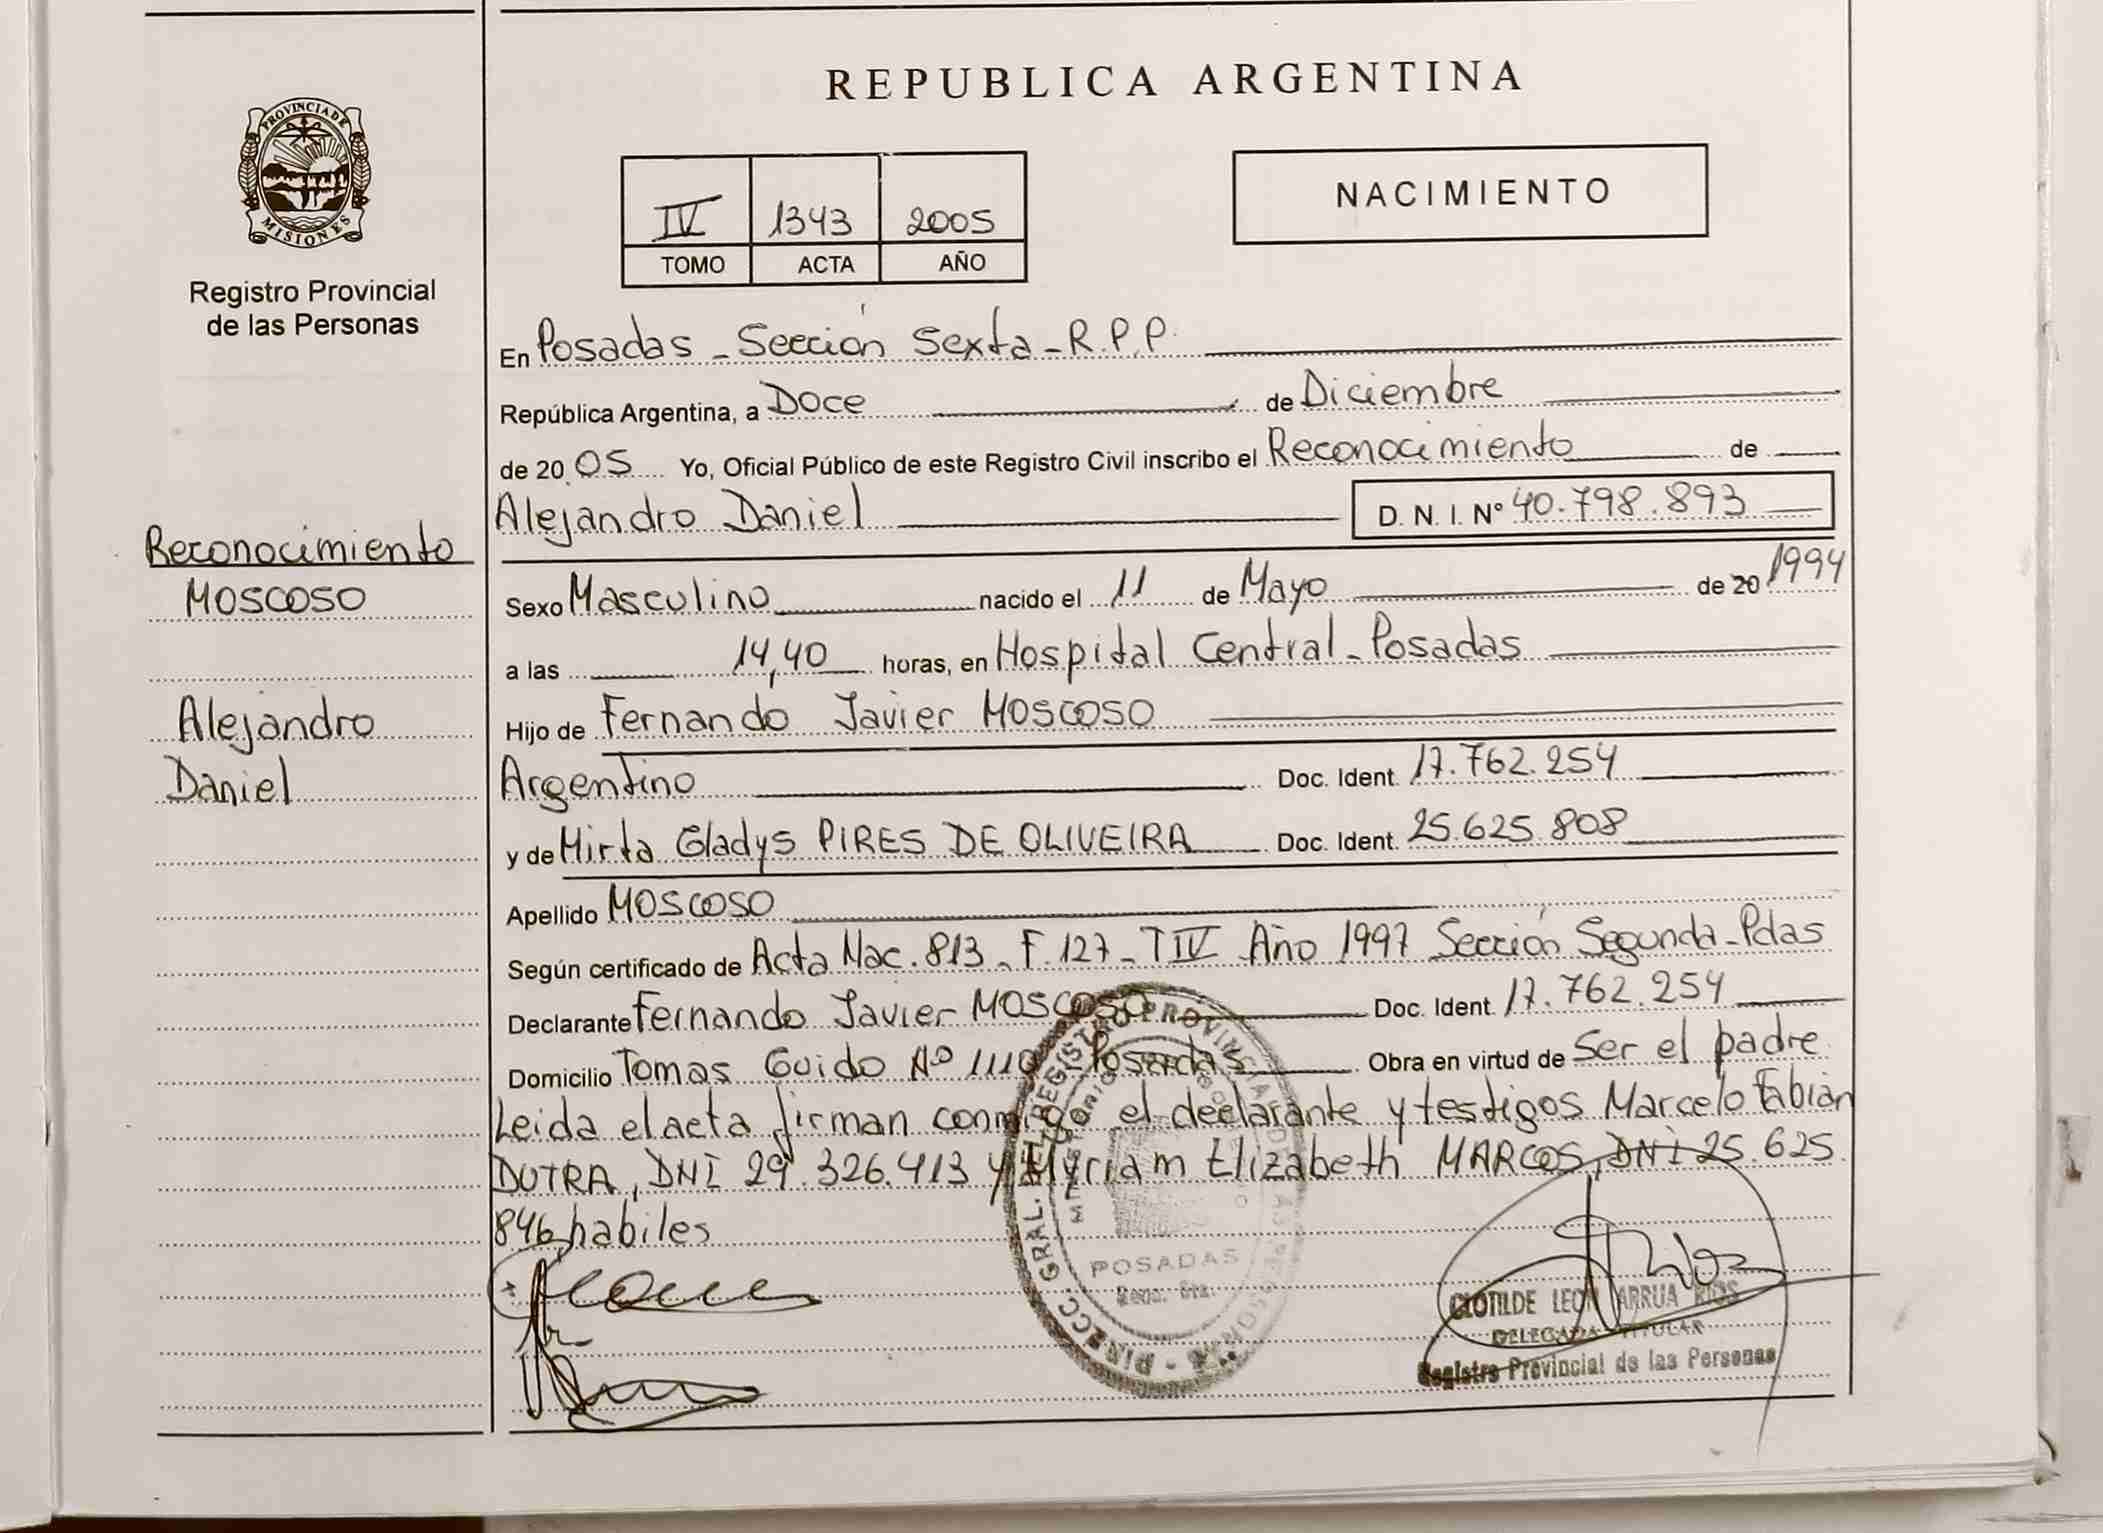 REPUBLICA ARGENTINA
PROVINCIA DE
MISIONES
Registro Provincial
de las Personas
IV 1343 2005
TOMO ACTA AÑO
NACIMIENTO
En Posadas - Sección Sexta - R.P.P.
República Argentina, a Doce de Diciembre
de 20 05 Yo, Oficial Público de este Registro Civil inscribo el Reconocimiento de
Alejandro Daniel D. N. I. Nº 40.798.893
Reconocimiento
MOSCOSO
Alejandro
Daniel
Sexo Masculino nacido el 11 de Mayo de 20 1994
a las 14,40 horas, en Hospital Central - Posadas
Hijo de Fernando Javier MOSCOSO
Argentino Doc. Ident. 17.762.254
y de Mirta Gladys PIRES DE OLIVEIRA Doc. Ident. 25.625.808
Apellido MOSCOSO
Según certificado de Acta Nac. 813 - F. 127 - T IV Año 1997 Sección Segunda - Pdas
Declarante Fernando Javier MOSCOSO Doc. Ident. 17.762.254
Domicilio Tomas Guido Nº 1110 Posadas Obra en virtud de Ser el padre
Leida el acta firman conmigo el declarante y testigos Marcelo Fabián
DUTRA, DNI 29.326.413 y Myriam Elizabeth MARCOS, DNI 25.625.
846, habiles
DIRECC. GRAL. DEL REGISTRO PROVINCIAL DE LAS PERSONAS
POSADAS
CLOTILDE LEON ARRUA RIOS
DELEGADA TITULAR
Registro Provincial de las Personas